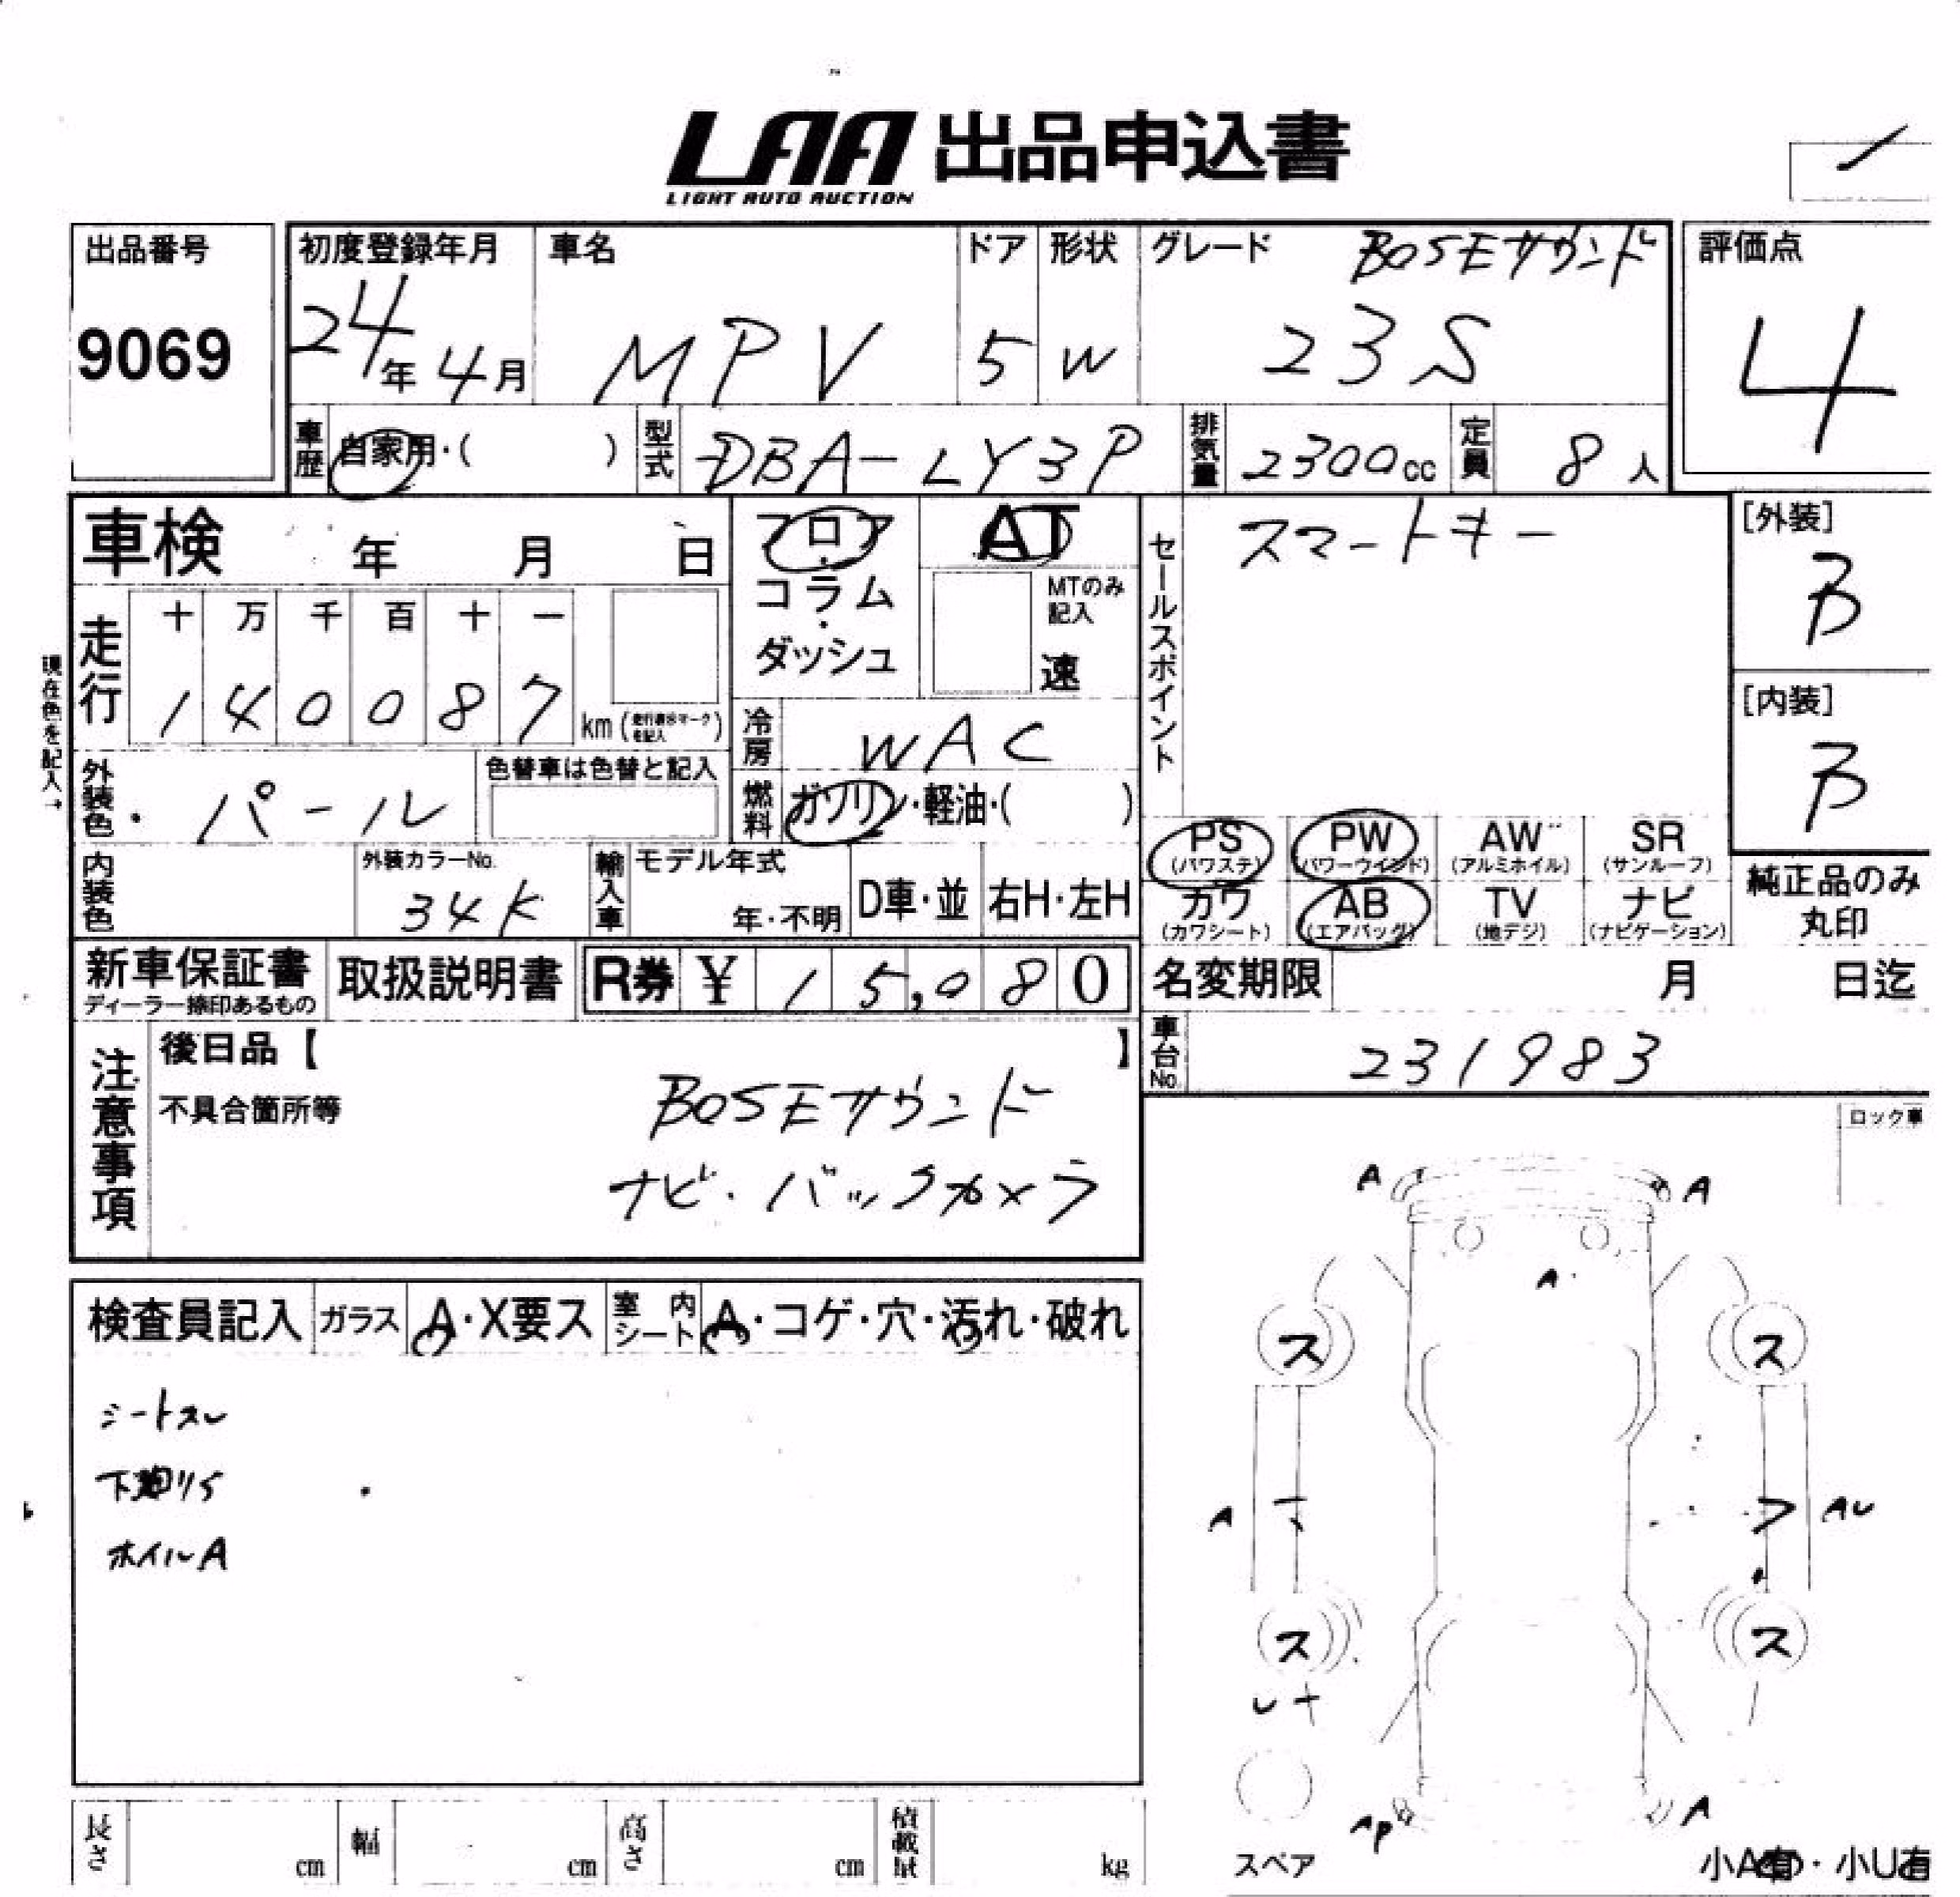 LAA 出品申込書
LIGHT AUTO AUCTION
出品番号
9069
初度登録年月
24年4月
車名
MPV
ドア
5
形状
W
グレード
BOSEサウンド
23S
評価点
4
車歴 自家用・( )
型式 DBA-LY3P
排気量 2300cc
定員 8人
車検 年 月 日
フロア・コラム・ダッシュ
AT
MTのみ記入
速
セールスポイント
スマートキー
[外装]
B
[内装]
B
現在色を記入→
走行
十 万 千 百 十 一
1 4 0 0 8 7 km
冷房 WAC
外装色・パール
色替車は色替と記入
燃料 ガソリン・軽油・( )
内装色
外装カラーNo.
34K
輸入車
モデル年式
年・不明
D車・並
右H・左H
PS (パワステ)
PW (パワーウインド)
AW (アルミホイル)
SR (サンルーフ)
カワ (カワシート)
AB (エアバッグ)
TV (地デジ)
ナビ (ナビゲーション)
純正品のみ
丸印
新車保証書
ディーラー捺印あるもの
取扱説明書
R券 ¥ 15,080
名変期限 月 日迄
車台No. 231983
注意事項
後日品【 】
不具合箇所等
BOSEサウンド
ナビ・バックカメラ
ロック車
検査員記入
ガラス A・X要ス
室内シート A・コゲ・穴・汚れ・破れ
シートスレ
ホイルA
A A
A
ス ス
A AU
ス ス
AP A
スペア
長さ cm
幅 cm
高さ cm
kg
小A有・小U有